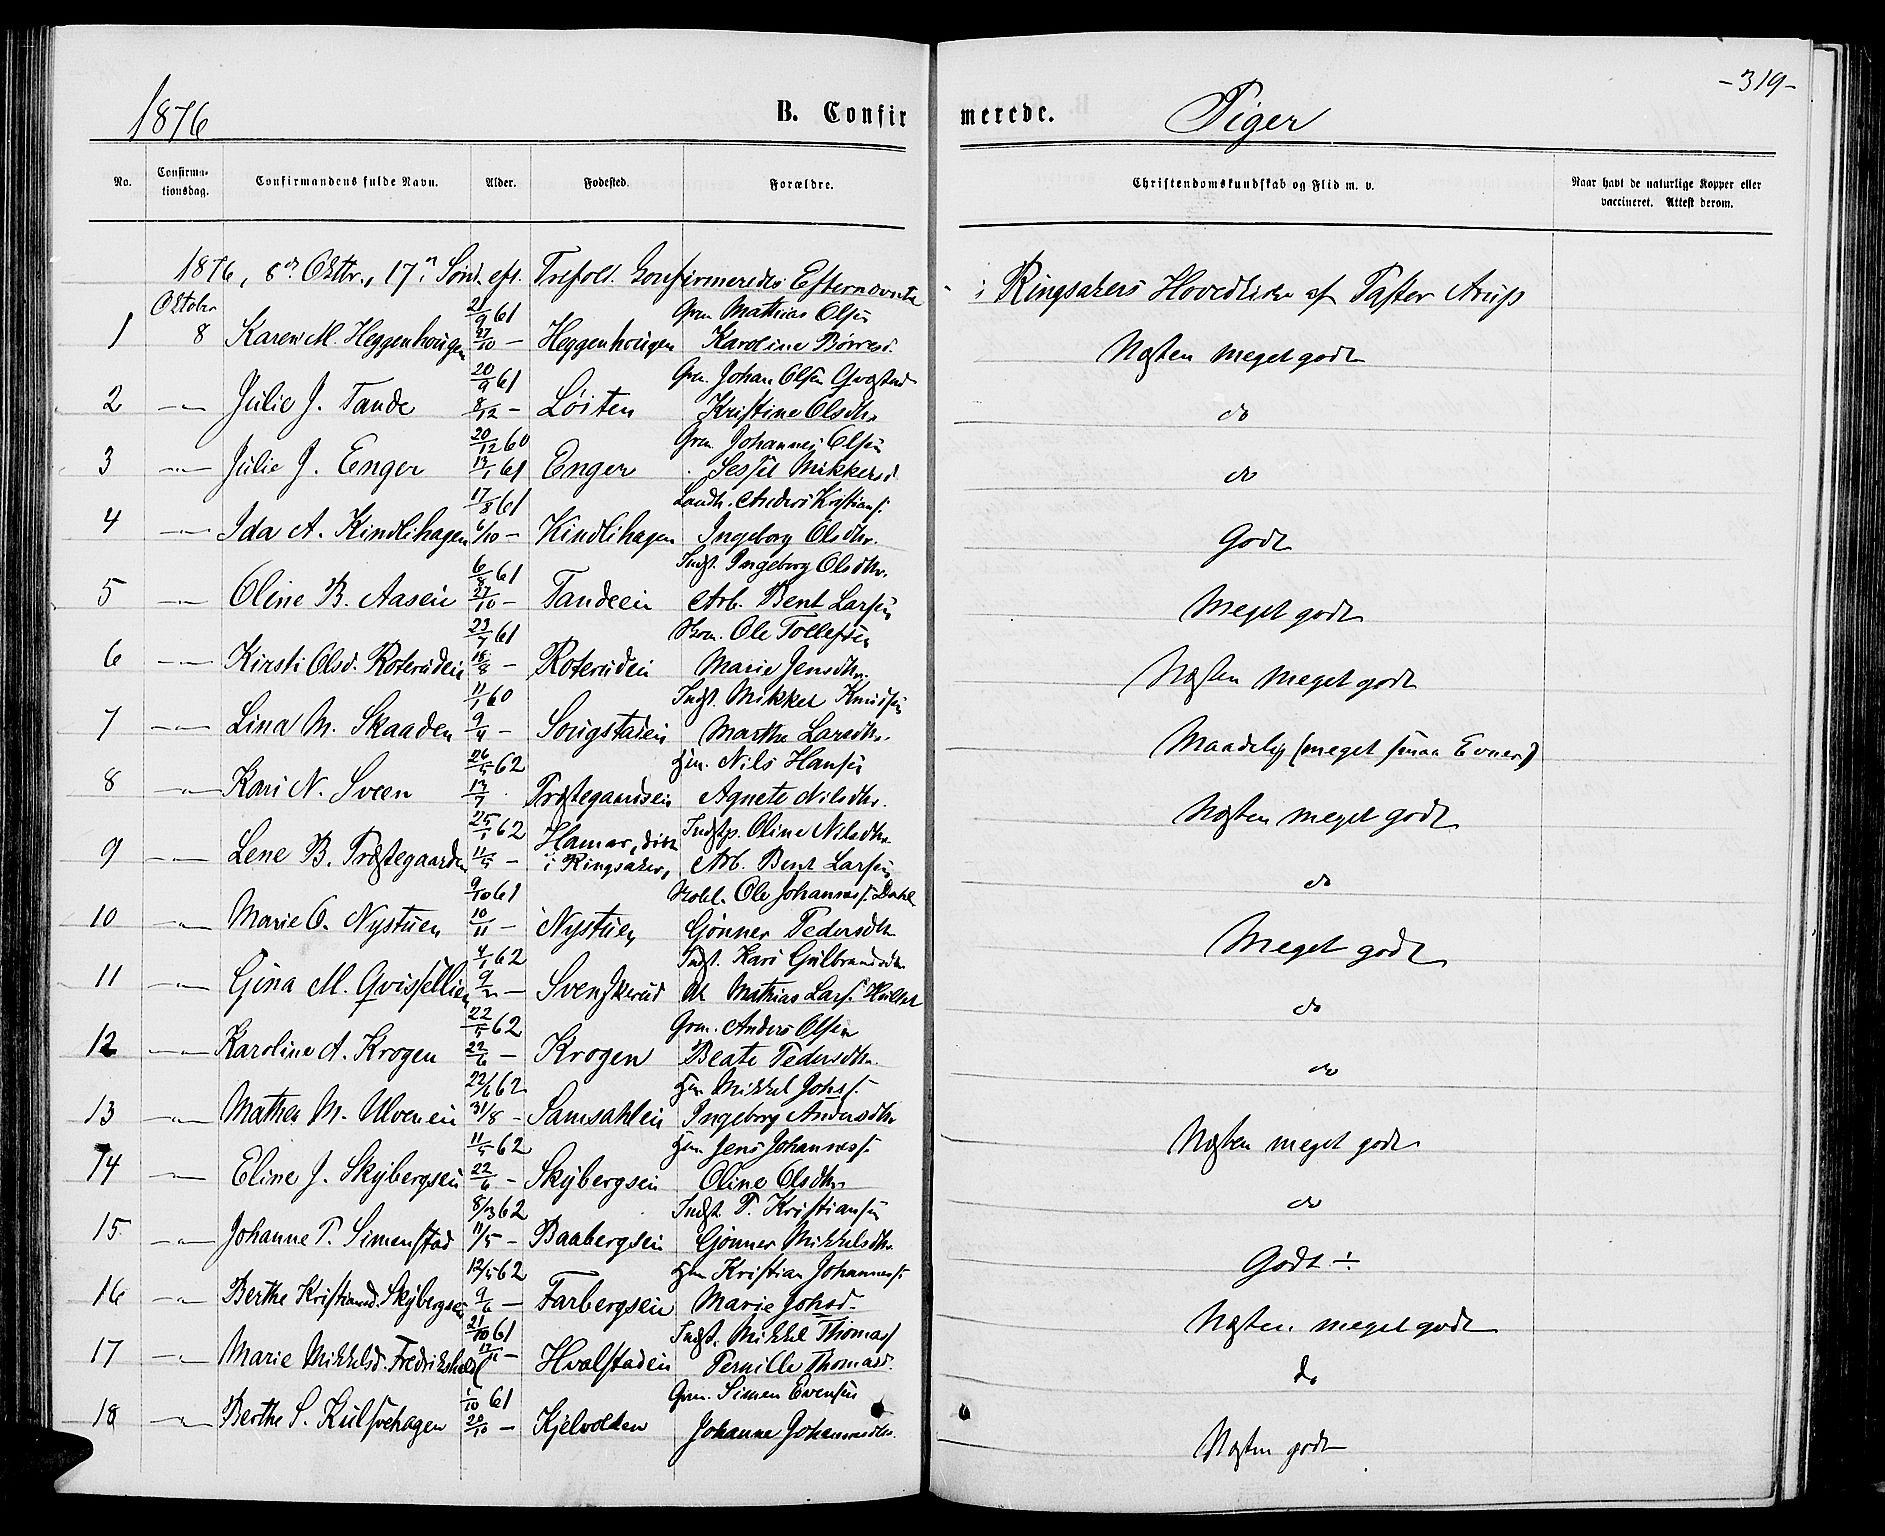 1876 B. Confirmerede. Piger -319-
No. Confirmationsdag. Confirmandens fulde Navn. Alder. Fødested. Forældre. Christendomskundskab og Flid m. v. Naar havt de naturlige Kopper eller vaccineret. Attest derom.
1876, 8de Oktbr., 17n Sønd. eft. Trefold. Confirmeredes Efternævnte i Ringsakers Hovedkirke af Pastor Arup
Oktober 2/9 61 Grm. Mathias Olsen
1 8 Karen M. Heggenhougen 27/10 - Heggenhougen Karoline Børresd. Næsten meget godt
20/9 61 Grm. Johan Olsen
2 -"- Julie J. Tande 8/12 - Løiten Kristine Olsdtr. do
20/12 60 Grm. Johannes Olsen
3 -"- Julie J. Enger 13/1 61 Enger Sessil Mikkelsd. do
17/8 61 Landh. Anders Kristians.
4 -"- Ida A. Kindlihagen 6/10 - Kindlihagen Ingeborg Olsdtr. Godt
6/8 61 Indst. Ingeborg Olsdtr.
5 -"- Oline B. Aaseie 27/10 - Tandeeie Arb. Bent Larsen Meget godt
23/7 61 Ole Tollefsen
6 -"- Kirsti Olsd. Roterudeie 18/8 - Roterudeie Marie Jensdtr. Næsten meget godt
11/1 60 Indst. Mikkel Knudsen
7 -"- Lina M. Skaaden 9/4 - Sougstadeie Marthe Larsdtr. Maadelig (meget smaa Evner)
26/5 62 Hm. Nils Hansen
8 -"- Kari N. Sveen 13/7 Præstegaardseie Agnete Nilsdtr. Næsten meget godt
25/1 62 Hamar, Indstp. Oline Nilsdtr.
9 -"- Lene B. Præstegaarden 11/5 - i Ringsaker, Arb. Bent Larsen do
9/10 61 Ole Johanness. Dahl
10 -"- Marie O. Nystuen 10/11 - Nystuen Gønner Pedersdtr. Meget godt
4/1 62 Indst. Kari Gulbrandsdtr.
11 -"- Gina M. Qvissellien 9/2 - Svenskerud Mathias Lars. do
22/5 62 Grm. Anders Olsen
12 -"- Karoline A. Krogen 22/6 - Krogen Beate Pedersdtr. do
22/6 62 Hm. Mikkel Johs.
13 -"- Mathea M. Ulveneie 31/8 - Samsahleie Ingeborg Andersdtr. Næsten meget godt
11/5 62 Hm. Jens Johanness.
14 -"- Eline J. Skybergseie 22/6 - Skybergseie Oline Olsdtr. do
8/3 62 Indst. P. Kristiansen
15 -"- Johanne P. Simenstad 11/5 - Baabergseie Gønner Mikkelsdtr. Godt ÷
12/5 62 Hm Kristian Johanness.
16 -"- Berthe Kristiansd. Skybergseie 9/6 - Farbergseie Marie Johsd. Næsten meget godt
21/10 61 Indst. Mikkel Thomass.
17 -"- Marie Mikkelsd. Fredrikshald 17/11 - Hvalstadeie Pernille Thomasd. do
1/10 61 Grm. Simen Evensen
18 -"- Berthe S. Kulsvehagen 20/10 - Kjelvolden Johanne Johannesdtr. Næsten godt